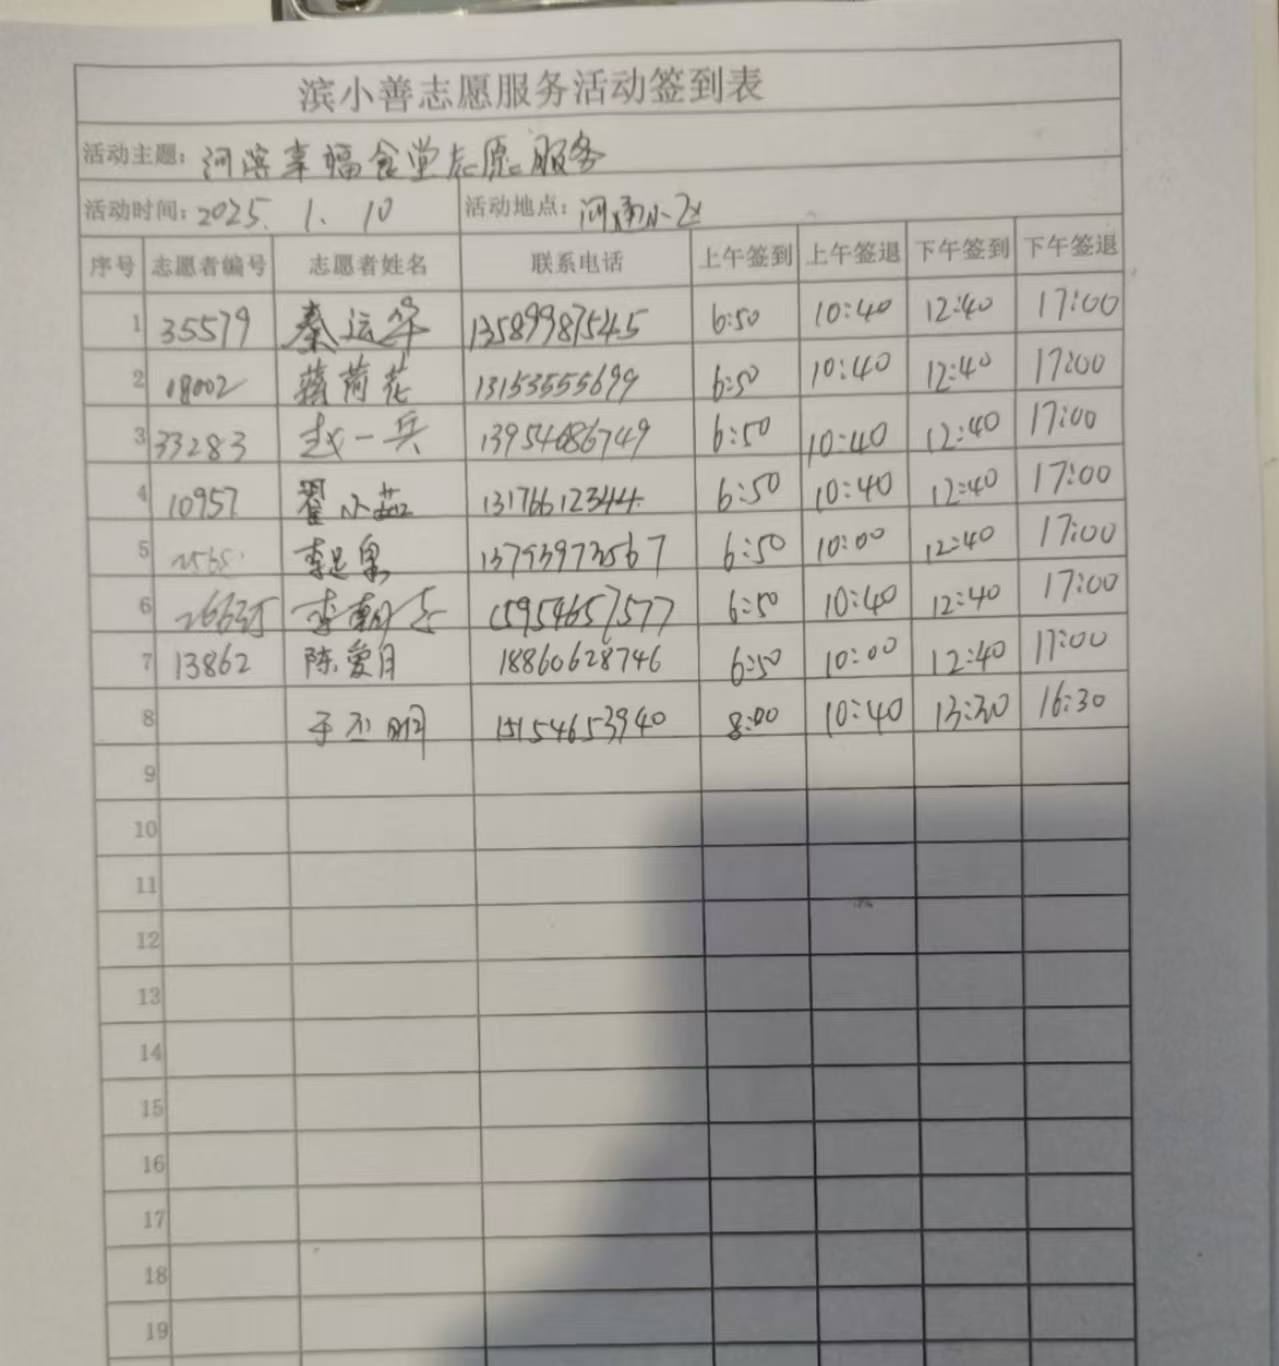 滨小善志愿服务活动签到表
活动主题：河滨幸福食堂志愿服务
活动时间：2025. 1. 10 活动地点：河南小区
序号 志愿者编号 志愿者姓名 联系电话 上午签到 上午签退 下午签到 下午签退
1 35579 秦运华 13589987545 6:50 10:40 12:40 17:00
2 18002 荷花 13153555699 6:50 10:40 12:40 17:00
3 33283 赵一兵 13954686749 6:50 10:40 12:40 17:00
4 10957 翟小茹 13176612344 6:50 10:40 12:40 17:00
5 李是泉 13793973567 6:50 10:00 12:40 17:00
6 李朝 15954657577 6:50 10:40 12:40 17:00
7 13862 陈爱月 18860628746 6:50 10:00 12:40 17:00
8 于丕明 15154653940 8:00 10:40 13:30 16:30
9
10
11
12
13
14
15
16
17
18
19